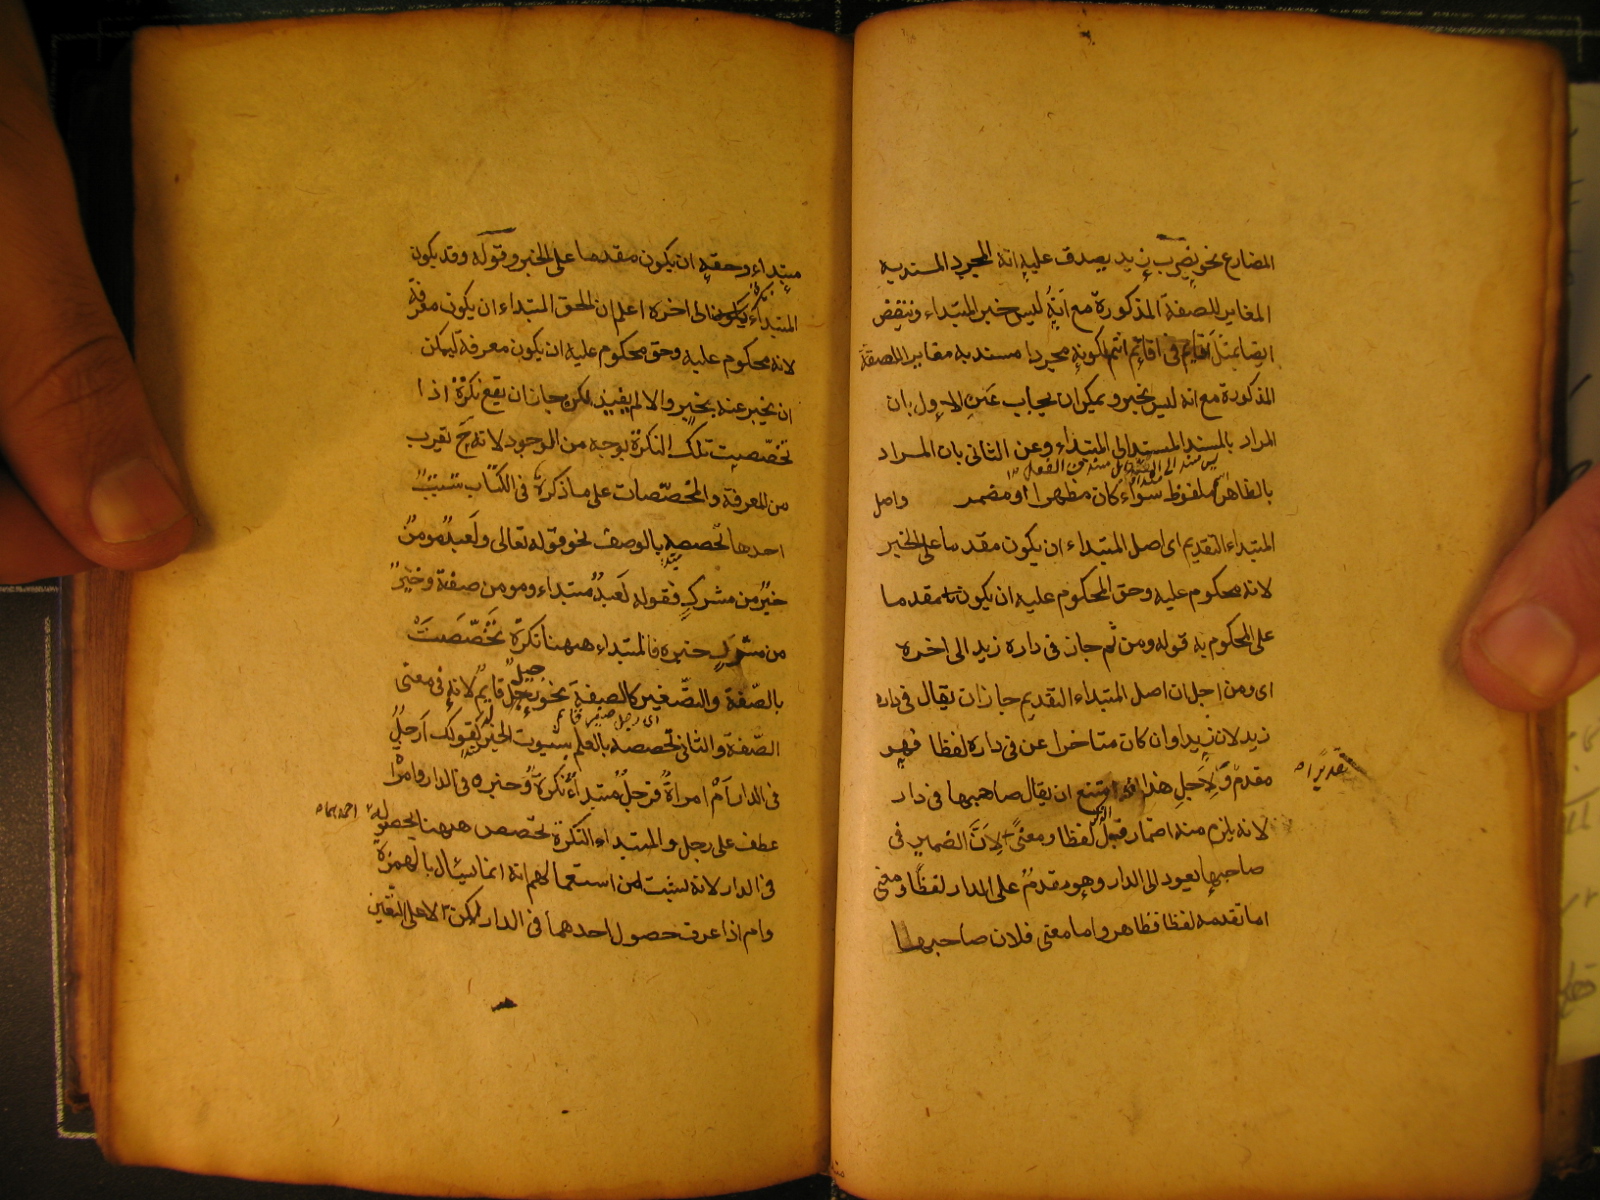 المضارع نحو يضرب زيد يصدق عليه انه المجرد المسند به
المغاير للصفة المذكورة مع انه ليس خبر المبتداء وننقض
ايضا بمثل اقايم فى اقائم انتم لكونه مجردا مسند به مغاير للصفة
المذكورة مع انه ليس بخبر ويمكن ان يجاب عن الاول بان
المراد بالمسند المسند الى المبتداء وعن الثانى بان المراد
بالظاهر ملفوظ سواء كان مظهرا او مضمر واصل
المبتداء التقديم اى اصل المبتداء ان يكون مقدما على الخبر
لانه محكوم عليه وحق المحكوم عليه ان يكون مقدما
على المحكوم به قوله ومن ثم جاز فى داره زيد الى اخره
اى ومن اجل ان اصل المبتداء التقديم جاز ان يقال فى داره
زيد لان زيدا وان كان متاخرا عن فى داره لفظا فهو
تقديرا
مقدم ولاجل هذا امتنع ان يقال صاحبها فى دار
لانه يلزم منه اضمار قبل الذكر لفظا ومعنى لان الضمير فى
صاحبها يعود الى الدار وهو مقدم على الدار لفظا ومعنى
اما تقدمه لفظا فظاهر واما معنى فلان صاحبها
مبتداء وحقه ان يكون مقدما على الخبر وقوله وقد يكون
المبتداء نكرة الى اخره اعلم ان الحق المبتداء ان يكون معرفة
لانه محكوم عليه وحق محكوم عليه ان يكون معرفة ليمكن
ان يخبر عنه بخبر والا لم يفيد لكن جاز ان يقع نكرة اذا
تخصصت تلك النكرة بوجه من الوجود لانه ح يقرب
من المعرفة والمخصصات على ما ذكره فى الكتاب ستة
احدها تخصصه بالوصف نحو قوله تعالى ولعبد مومن
خير من مشرك فقوله لعبد مبتداء ومومن صفة وخير
من مشرك خبره فالمبتداء ههنا نكرة تخصصت
بالصفة والتصغير كالصفة نحو رجيل قايم لانه فى معنى
اى رجل صغير قايم
الصفة والثانى تخصصه بالعلم بثبوت الخبر له كقولك ارجل
فى الدار ام امراة فرجل مبتداء نكرة وخبره فى الدار وامراة
عطف على رجل والمبتداء النكرة تخصص ههنا بحصوله
فى الدار لانه يثبت من استعمالهم انه انما يسئال بالهمزة
وام اذا عرف حصول احدهما فى الدار لكن لا على التعين